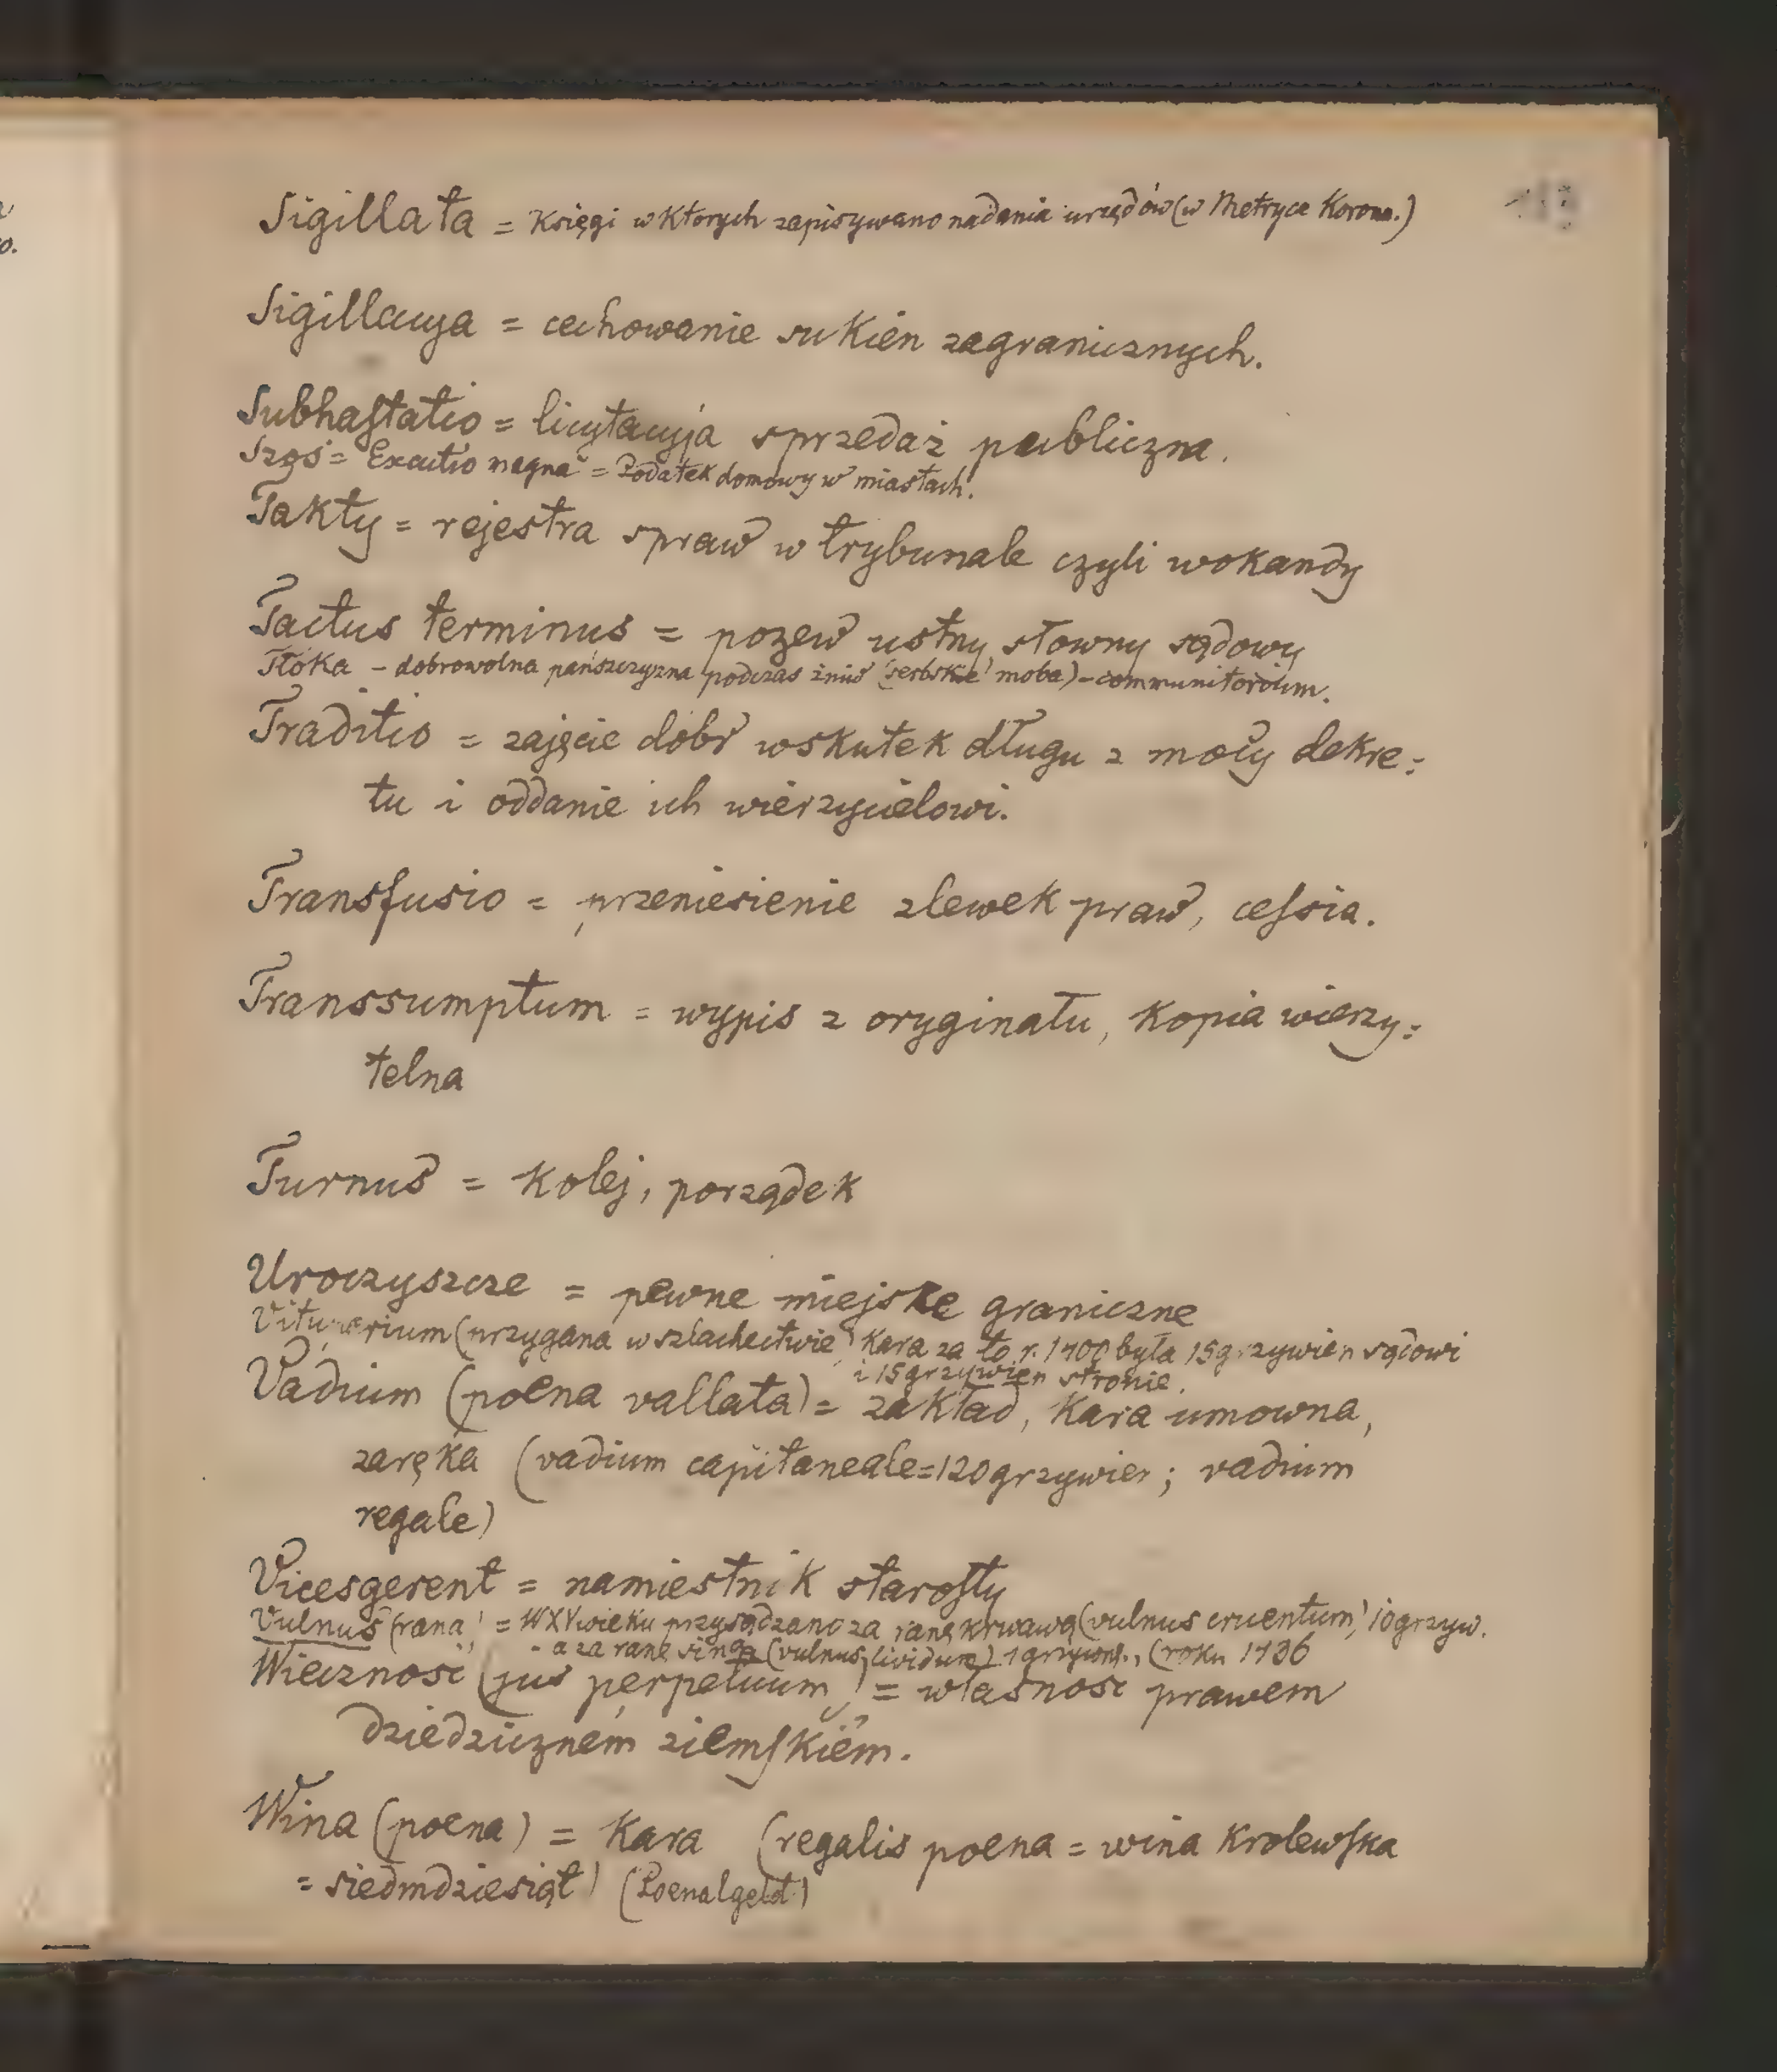 Sigillata = Księgi w których zapisywano nadania urzędów (w Metryce Koronn.)
Sigillacyja = cechowanie sukien zagranicznych.
Subhaſtatio = licytacyja sprzedaż publiczna.
Szos = "Exactio magna" = Podatek domowy w miastach.
Takty = rejestra spraw w trybunale czyli wokandy
Tactus terminus = pozew ustny słowny sądowy
Tłóka - dobrowolna pańszczyzna podczas żniw (serbskie moba) - communitorium.
Traditio = zajęcie dobr wskutek długu z mocy dekre=
tu i oddanie ich wierzycielowi.
Transfusio = przeniesienie zlewek praw, ceſsia.
Transsumptum = wypis z oryginału, kopia wierzy=
telna
Turnus = kolej, porządek
Uroczyszcze = pewne miejsce graniczne
(przygana w szlachectwie) kara za to r. 1400 była 15 grzywien sądowi
i 15 grzywien stronie.
Vadium (poena vallata) = zakład, kara umowna,
zaręka (vadium capitaneale = 120 grzywien; vadium
regale)
Vicesgerent = namiestnik staroſty
Vulnus (rana) = W XV wieku przysądzano za ranę krwawą (vulnus cruentum) 10 grzyw.
- a za ranę siną (vulnus lividum) 1 grzywn., (roku 1436
Wieczność (jus perpetuum) = własność prawem
dziedzicznem ziemſkiem.
Wina (poena) = Kara (regalis poena = wina krolewſka
= siedmdziesiąt) (Poenalgeld)